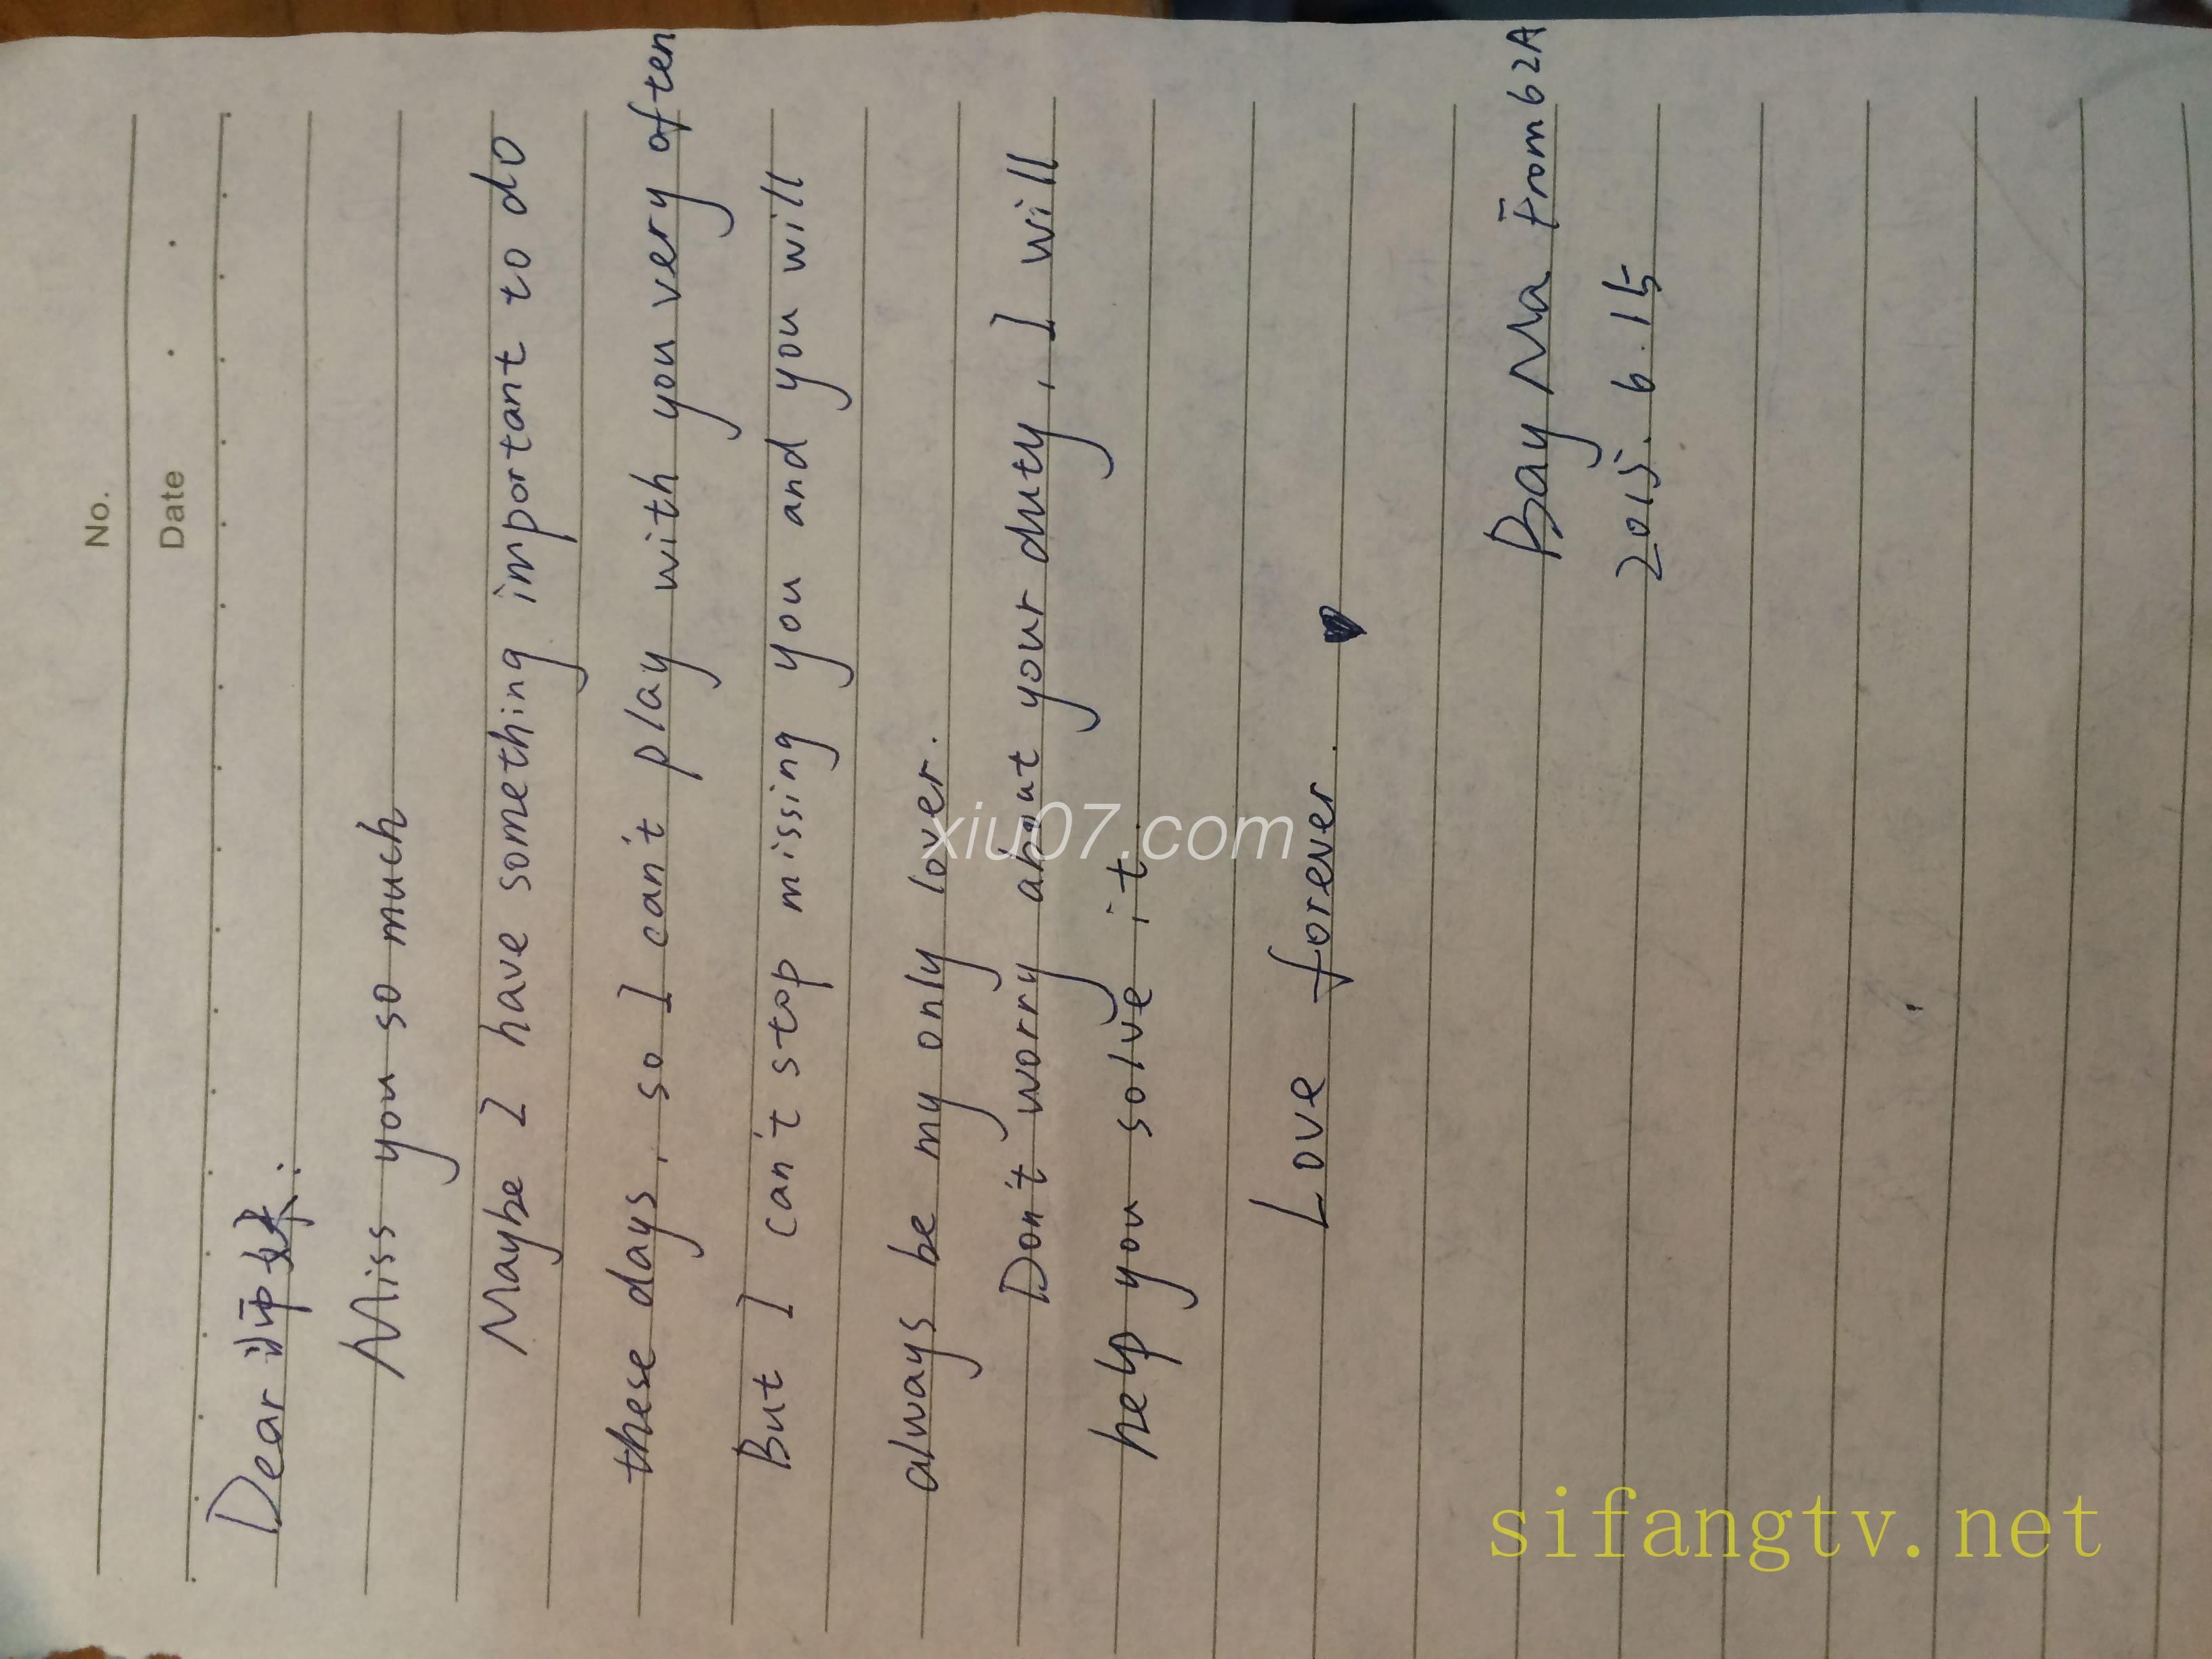 No.
Date
Dear 师妹:
Miss you so much
Maybe I have something important to do
these days, so I can't play with you very often
But I can't stop missing you and you will
always be my only lover.
Don't worry about your duty, I will
help you solve it.
Love forever. ♥
Bay Ma From 62A
2015. 6. 15
xiu07.com
sifangtv.net